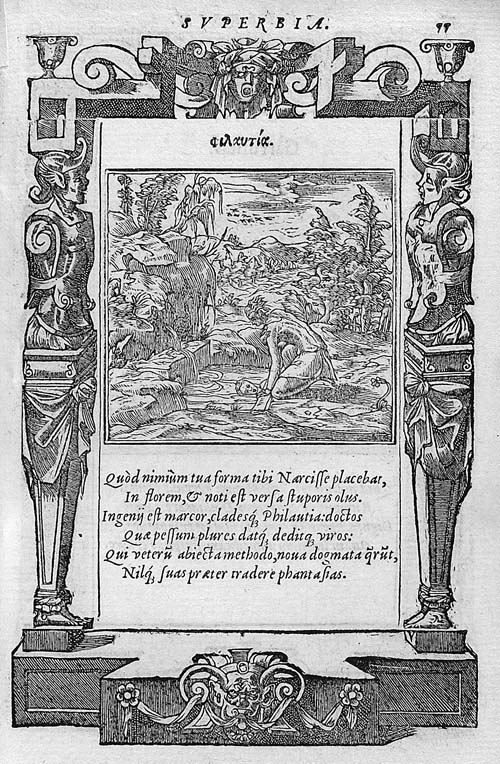 SVPERBIA.
77
φιλαυτία.
Quòd nimiùm tua forma tibi Narcisse placebat,
In florem, & noti est versa stuporis olus.
Ingenij est marcor, cladesq́, Philautia: doctos
Quæ pessum plures datq́, deditq́, viros:
Qui veterũ abiecta methodo, noua dogmata q̃rũt,
Nilq́, suas præter tradere phantasias.